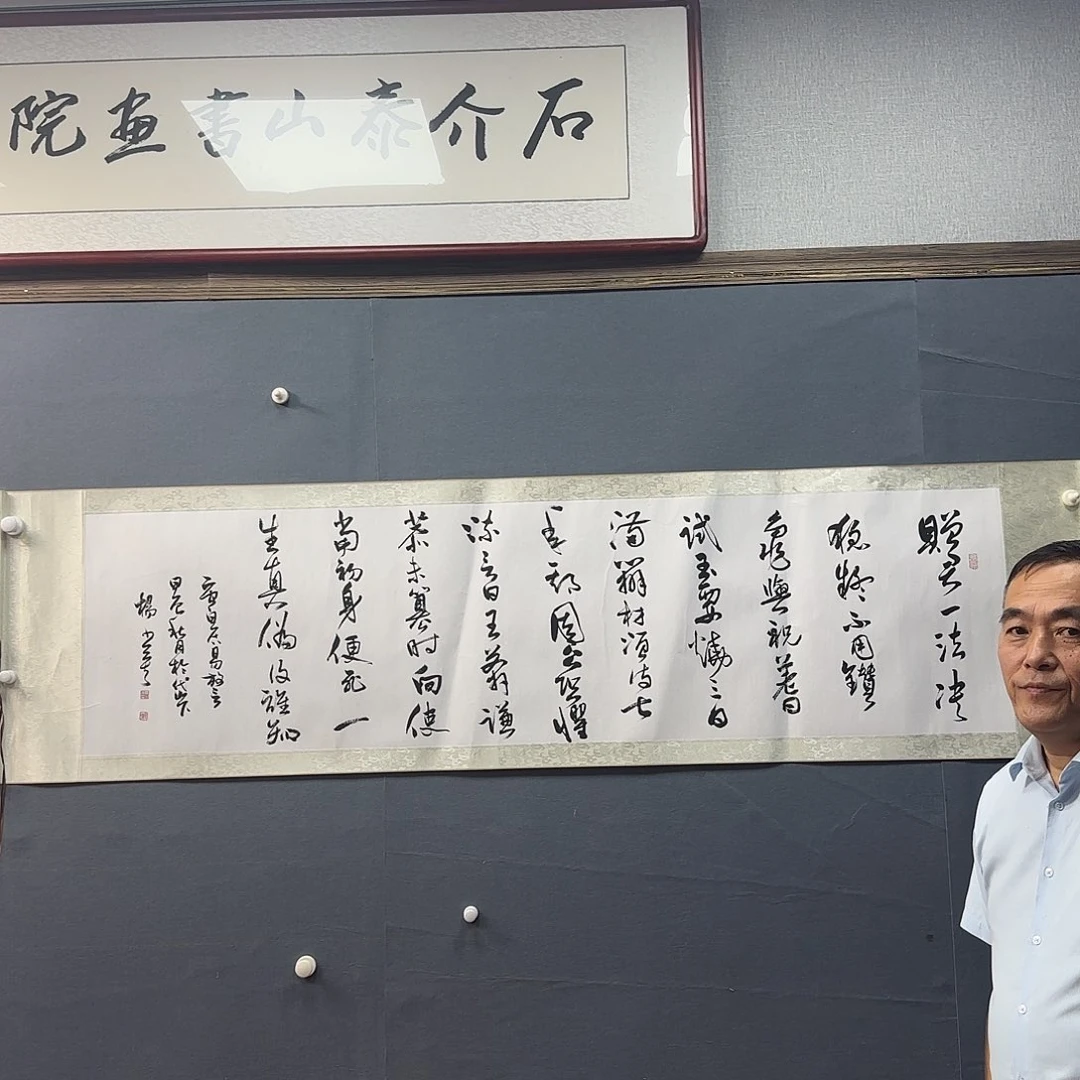 石介泰山書画院
贈君一法决
狐疑不用鑽
龜與祝蓍
試玉要燒三日
滿辨材須待七
年期周公恐懼
流言日王莽謙
恭未篡时向使
當初身便死一
生真偽復誰知
白居易放言
甲辰秋月於岱
楊